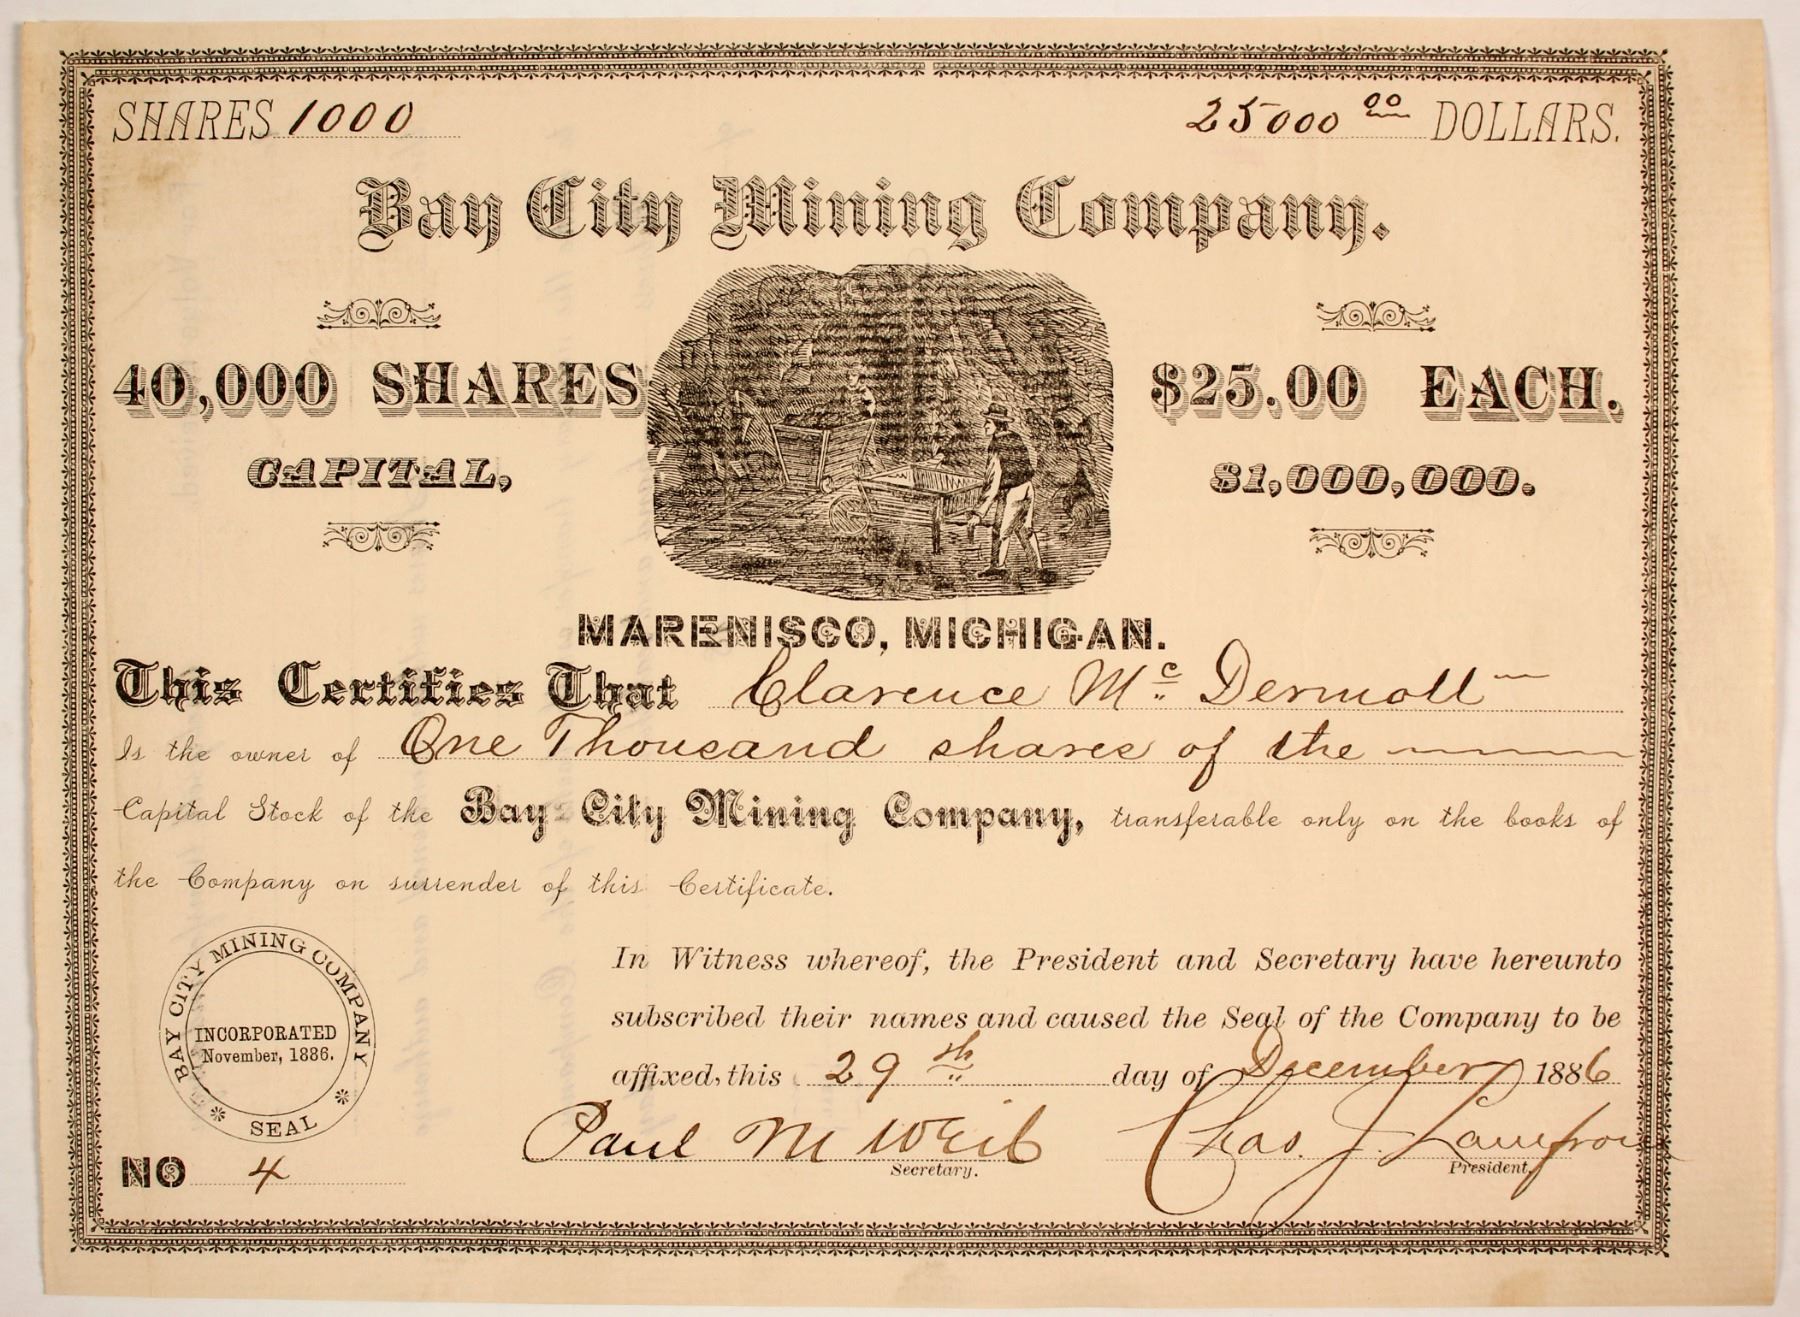 SHARES 1000
25000 00 DOLLARS.
Bay City Mining Company.
40,000 SHARES
$25.00 EACH.
CAPITAL,
$1,000,000.
MARENISCO, MICHIGAN.
This Certifies That Clarence Mc Dermott
Is the owner of One Thousand shares of the
Capital Stock of the Bay City Mining Company, transferable only on the books of
the Company on surrender of this Certificate.
In Witness whereof, the President and Secretary have hereunto
subscribed their names and caused the Seal of the Company to be
affixed, this 29th day of December 1886
BAY CITY MINING COMPANY
INCORPORATED
November, 1886.
SEAL
Paul M Weib
Secretary.
Chas. J.
President,
NO 4